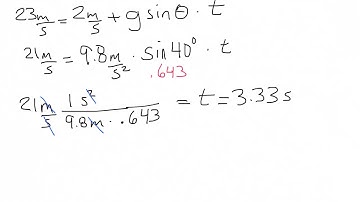 23 m/s = 2 m/s + g sinθ · t
21 m/s = 9.8 m/s² · sin40° · t
.643
21 m/s 1 s²/9.8 m · .643 = t = 3.33 s